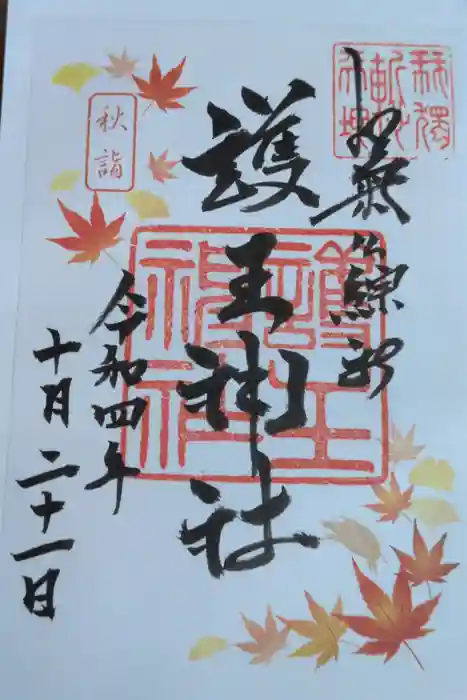 護王神社
護王神社
秋詣
令和四年
十月二十一日